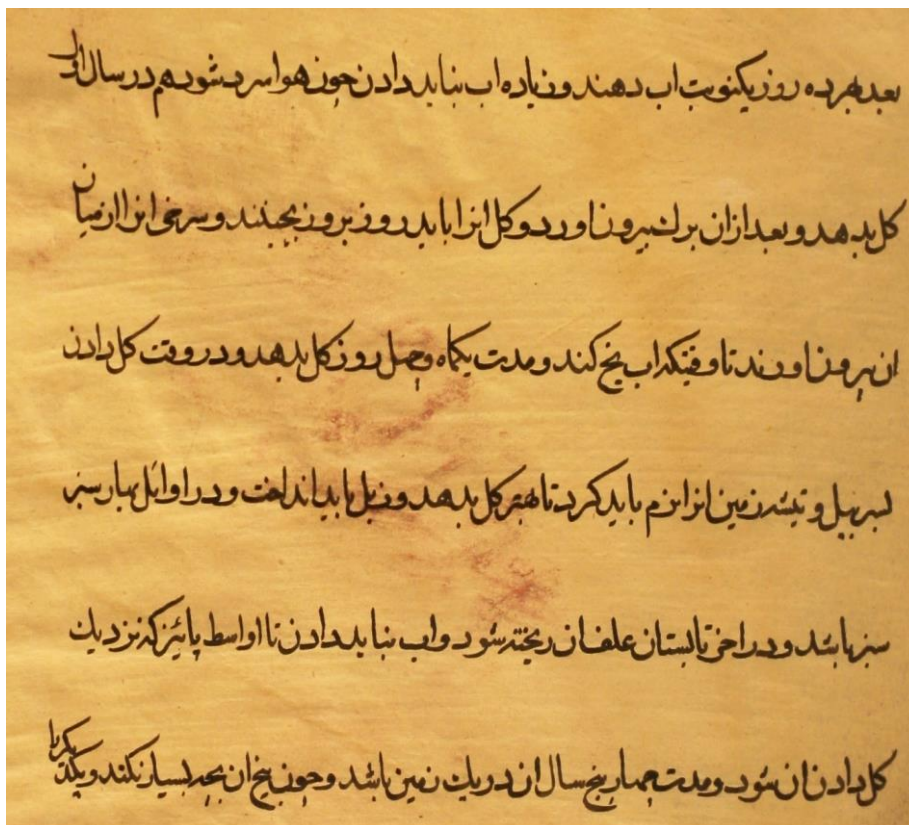 بعد هر ده روز یکنوبت اب دهند و زیاده اب نباید دادن چون هوا سرد شود هم در سال اول
کل بدهد و بعد ازان برك بیرون اورد و کل انرا باید روز بروز بچینند و سرخی انرا از میان
ان بیرون اورند تا وقتیکه اب یخ کند و مدت یکماه و چهل روز کل بدهد و در وقت کل دادن
بسر بیل و تیشه زمین انرا نرم باید کرد تا بهتر کل بدهد و زبل باید انداخت و در اوائل بهار سبز
سبز باشد و در اخر تابستان علف ان ریخته شود و اب نباید دادن تا اواسط پائیز که نزدیك
کل دادن ان شود و مدت چهار پنج سال ان در یك زمین باشد و چون بیخ ان بچه بسیار نکند و